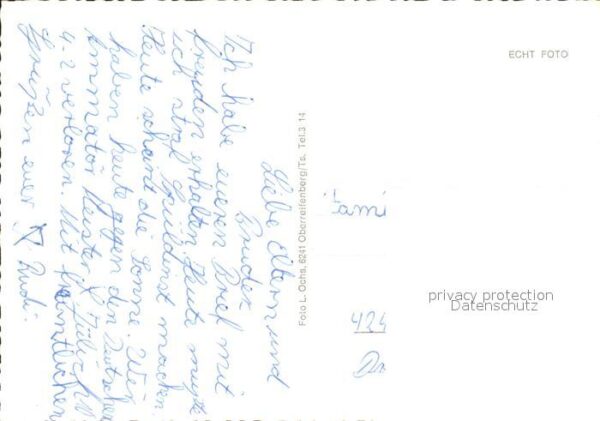 Liebe Eltern und
Bruder
Ich habe eueren Brief mit
freuden erhalten. Heute mußte
ich Küldinst machen
Heute scheint die Sonne. Wir
haben heute gegen den Deutschen
Ammatör Meister Jülich
4-2 verloren. Mit freundlichen
Grüßen euer
Rudi.
Foto L. Ochs, 6241 Oberreifenberg/Ts. Tel.3 14
ECHT FOTO
Fami
424
privacy protection
Datenschutz